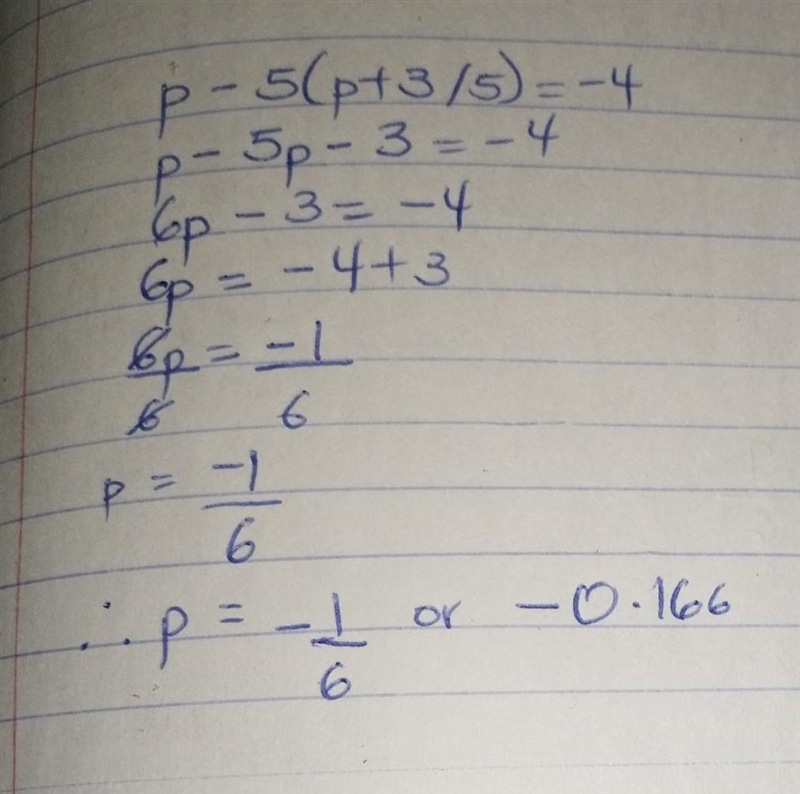 p - 5(p+3/5) = -4
p - 5p - 3 = -4
6p - 3 = -4
6p = -4+3
6p = -1
6 6
p = -1
6
∴ p = -1 or -0.166
6